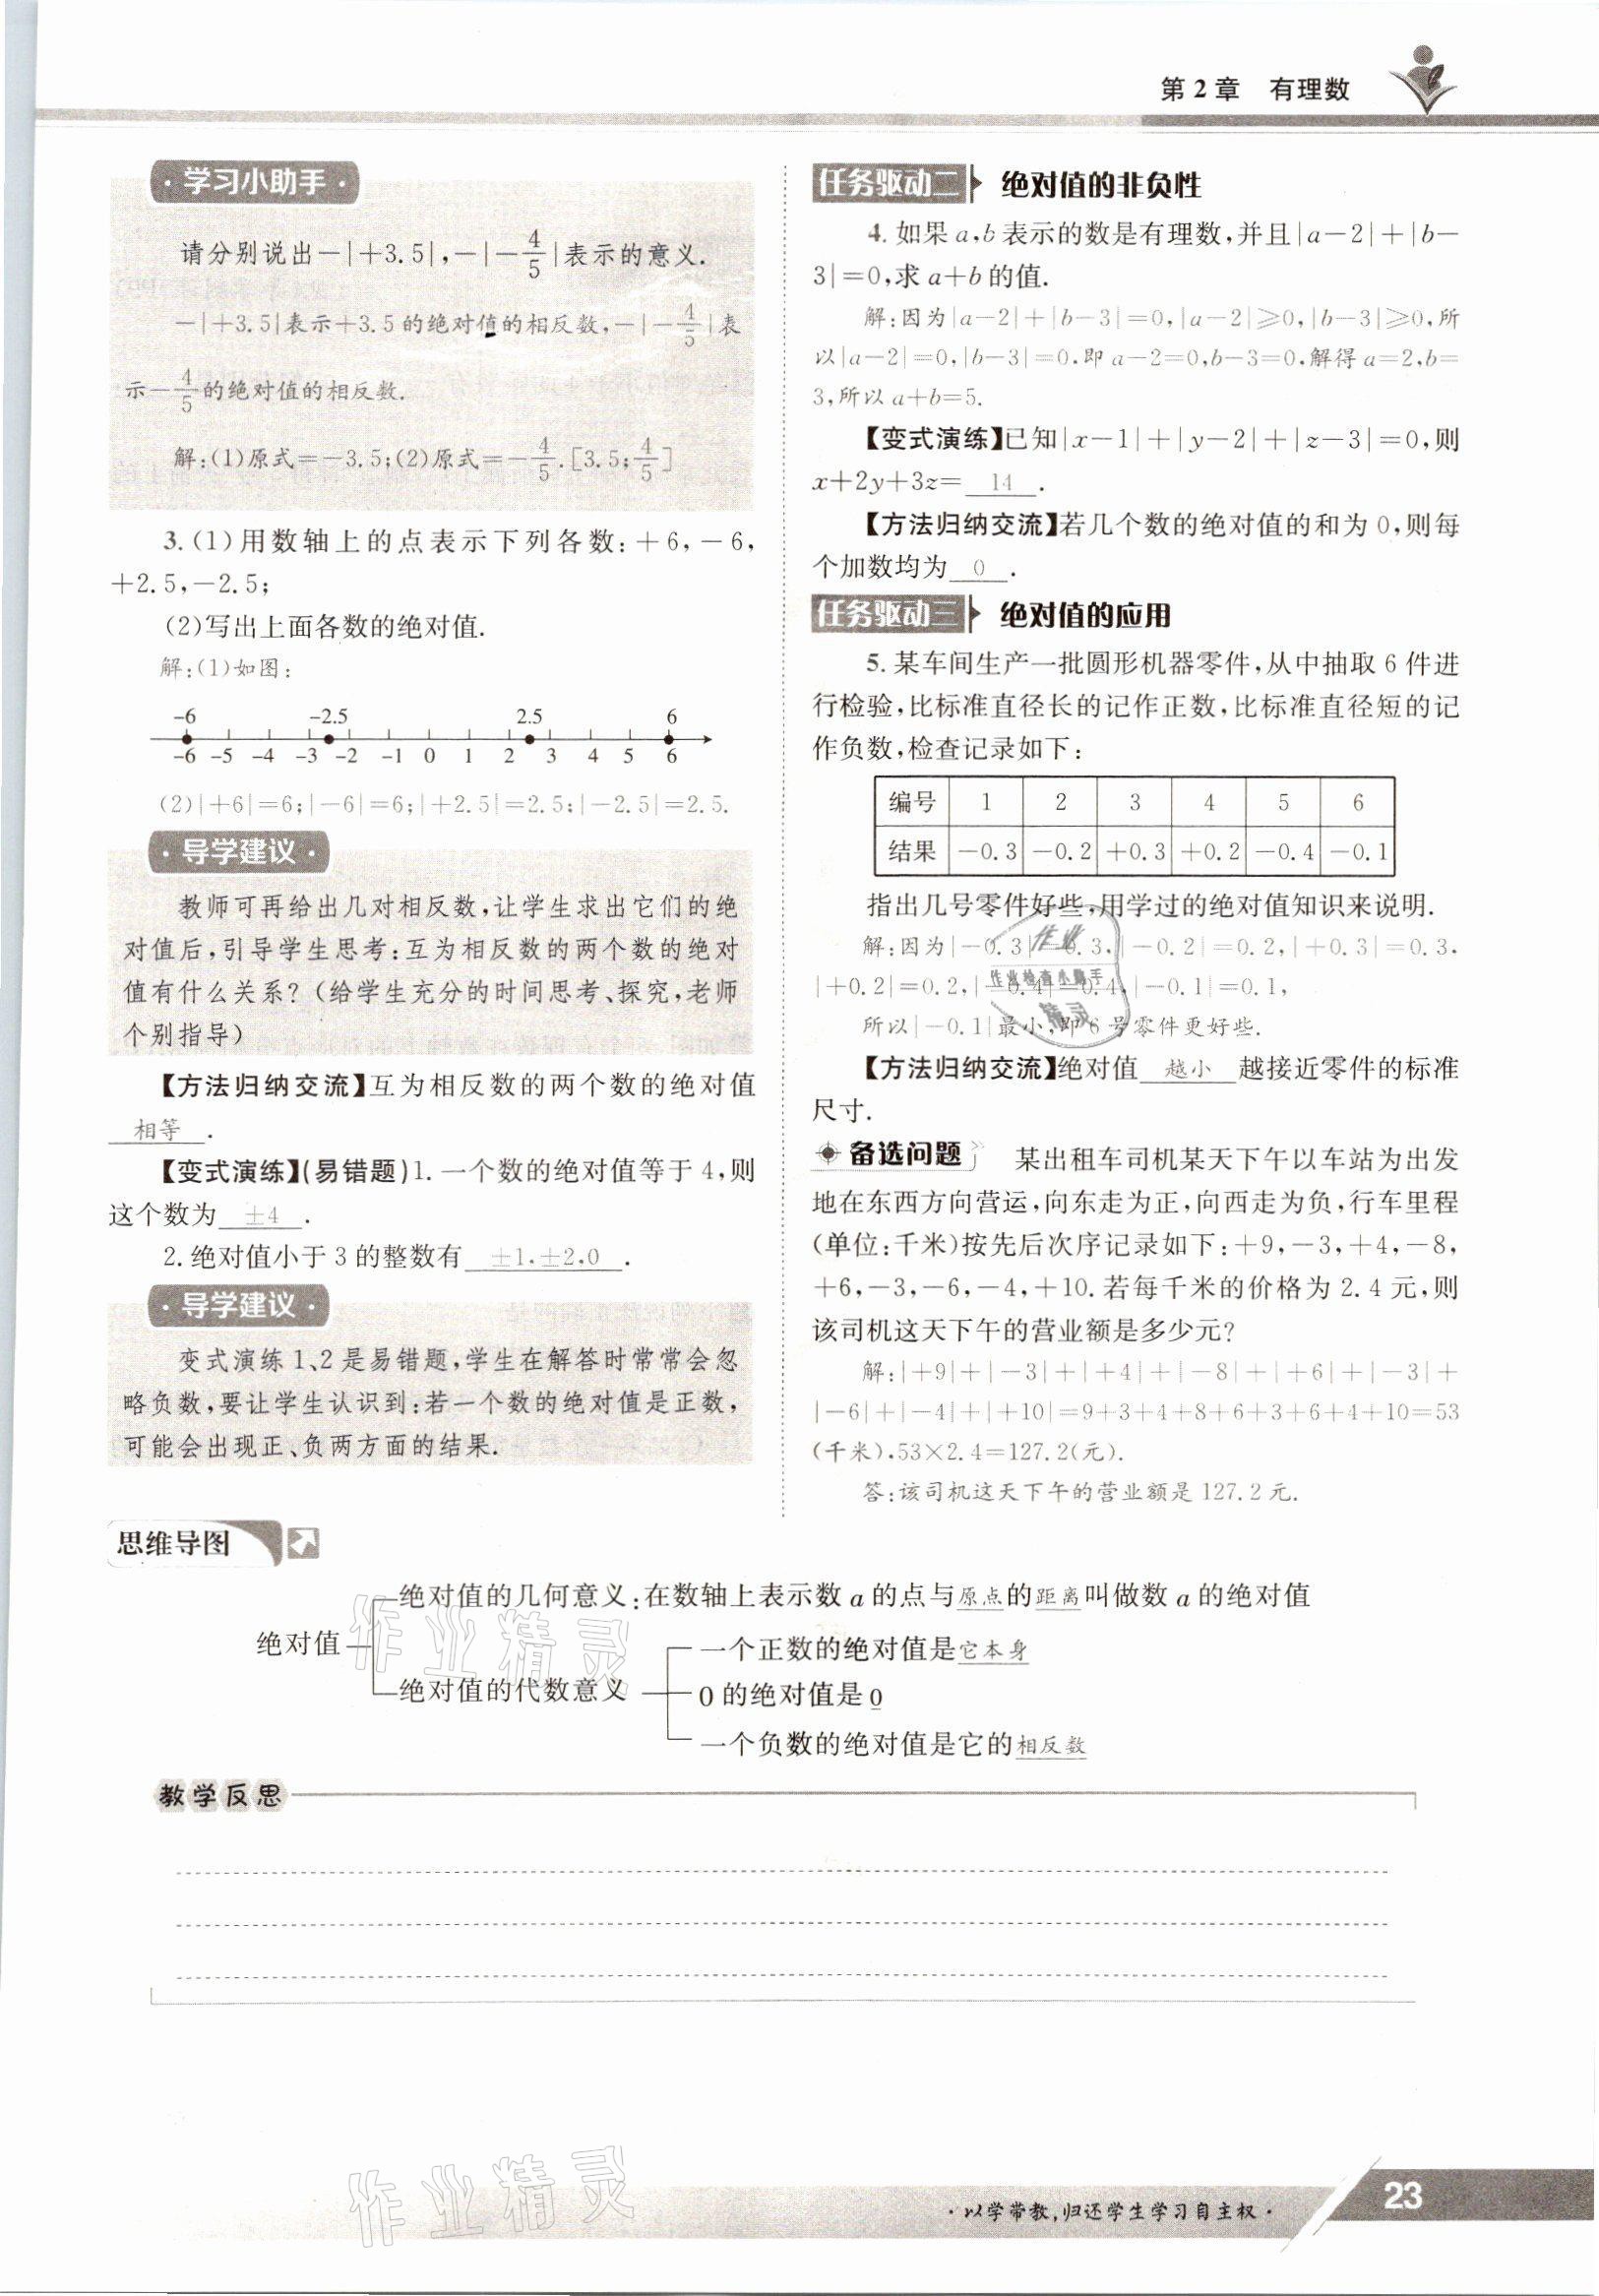 第2章 有理数
·学习小助手·
请分别说出－|＋3.5|,－|－4/5|表示的意义.
－|＋3.5|表示＋3.5的绝对值的相反数,－|－4/5|表
示－4/5的绝对值的相反数.
解:(1)原式＝－3.5;(2)原式＝－4/5.[3.5;4/5]
3.(1)用数轴上的点表示下列各数:＋6,－6,
＋2.5,－2.5;
(2)写出上面各数的绝对值.
解:(1)如图:
-6 -2.5 2.5 6
-6 -5 -4 -3 -2 -1 0 1 2 3 4 5 6
(2)|＋6|＝6;|－6|＝6;|＋2.5|＝2.5;|－2.5|＝2.5.
·导学建议·
教师可再给出几对相反数,让学生求出它们的绝
对值后,引导学生思考:互为相反数的两个数的绝对
值有什么关系?(给学生充分的时间思考、探究,老师
个别指导)
【方法归纳交流】互为相反数的两个数的绝对值
相等.
【变式演练】(易错题)1.一个数的绝对值等于4,则
这个数为 ±4 .
2.绝对值小于3的整数有 ±1,±2,0 .
·导学建议·
变式演练1、2是易错题,学生在解答时常常会忽
略负数,要让学生认识到:若一个数的绝对值是正数,
可能会出现正、负两方面的结果.
任务驱动二 绝对值的非负性
4.如果a,b表示的数是有理数,并且|a－2|＋|b－
3|＝0,求a＋b的值.
解:因为|a－2|＋|b－3|＝0,|a－2|≥0,|b－3|≥0,所
以|a－2|＝0,|b－3|＝0.即a－2＝0,b－3＝0.解得a＝2,b＝
3,所以a＋b＝5.
【变式演练】已知|x－1|＋|y－2|＋|z－3|＝0,则
x＋2y＋3z＝ 14 .
【方法归纳交流】若几个数的绝对值的和为0,则每
个加数均为 0 .
任务驱动三 绝对值的应用
5.某车间生产一批圆形机器零件,从中抽取6件进
行检验,比标准直径长的记作正数,比标准直径短的记
作负数,检查记录如下:
编号 1 2 3 4 5 6
结果 －0.3 －0.2 ＋0.3 ＋0.2 －0.4 －0.1
指出几号零件好些,用学过的绝对值知识来说明.
解:因为|－0.3|＝0.3,|－0.2|＝0.2,|＋0.3|＝0.3,
|＋0.2|＝0.2,|－0.4|＝0.4,|－0.1|＝0.1,
所以|－0.1|最小,即6号零件更好些.
作业
作业检查小助手
精灵
【方法归纳交流】绝对值 越小 越接近零件的标准
尺寸.
备选问题 某出租车司机某天下午以车站为出发
地在东西方向营运,向东走为正,向西走为负,行车里程
(单位:千米)按先后次序记录如下:＋9,－3,＋4,－8,
＋6,－3,－6,－4,＋10.若每千米的价格为2.4元,则
该司机这天下午的营业额是多少元?
解:|＋9|＋|－3|＋|＋4|＋|－8|＋|＋6|＋|－3|＋
|－6|＋|－4|＋|＋10|＝9＋3＋4＋8＋6＋3＋6＋4＋10＝53
(千米),53×2.4＝127.2(元).
答:该司机这天下午的营业额是127.2元.
思维导图
绝对值的几何意义:在数轴上表示数a的点与原点的距离叫做数a的绝对值
绝对值
一个正数的绝对值是它本身
绝对值的代数意义
0的绝对值是0
一个负数的绝对值是它的相反数
作业精灵
教学反思
作业精灵
·以学带教,归还学生学习自主权·
23